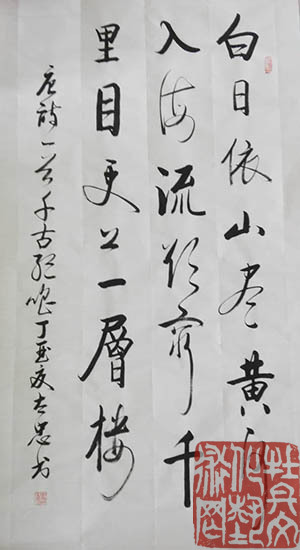 白日依山尽黄河
入海流欲穷千
里目更上一層楼
唐诗一首千古绝唱丁亥夏忠书